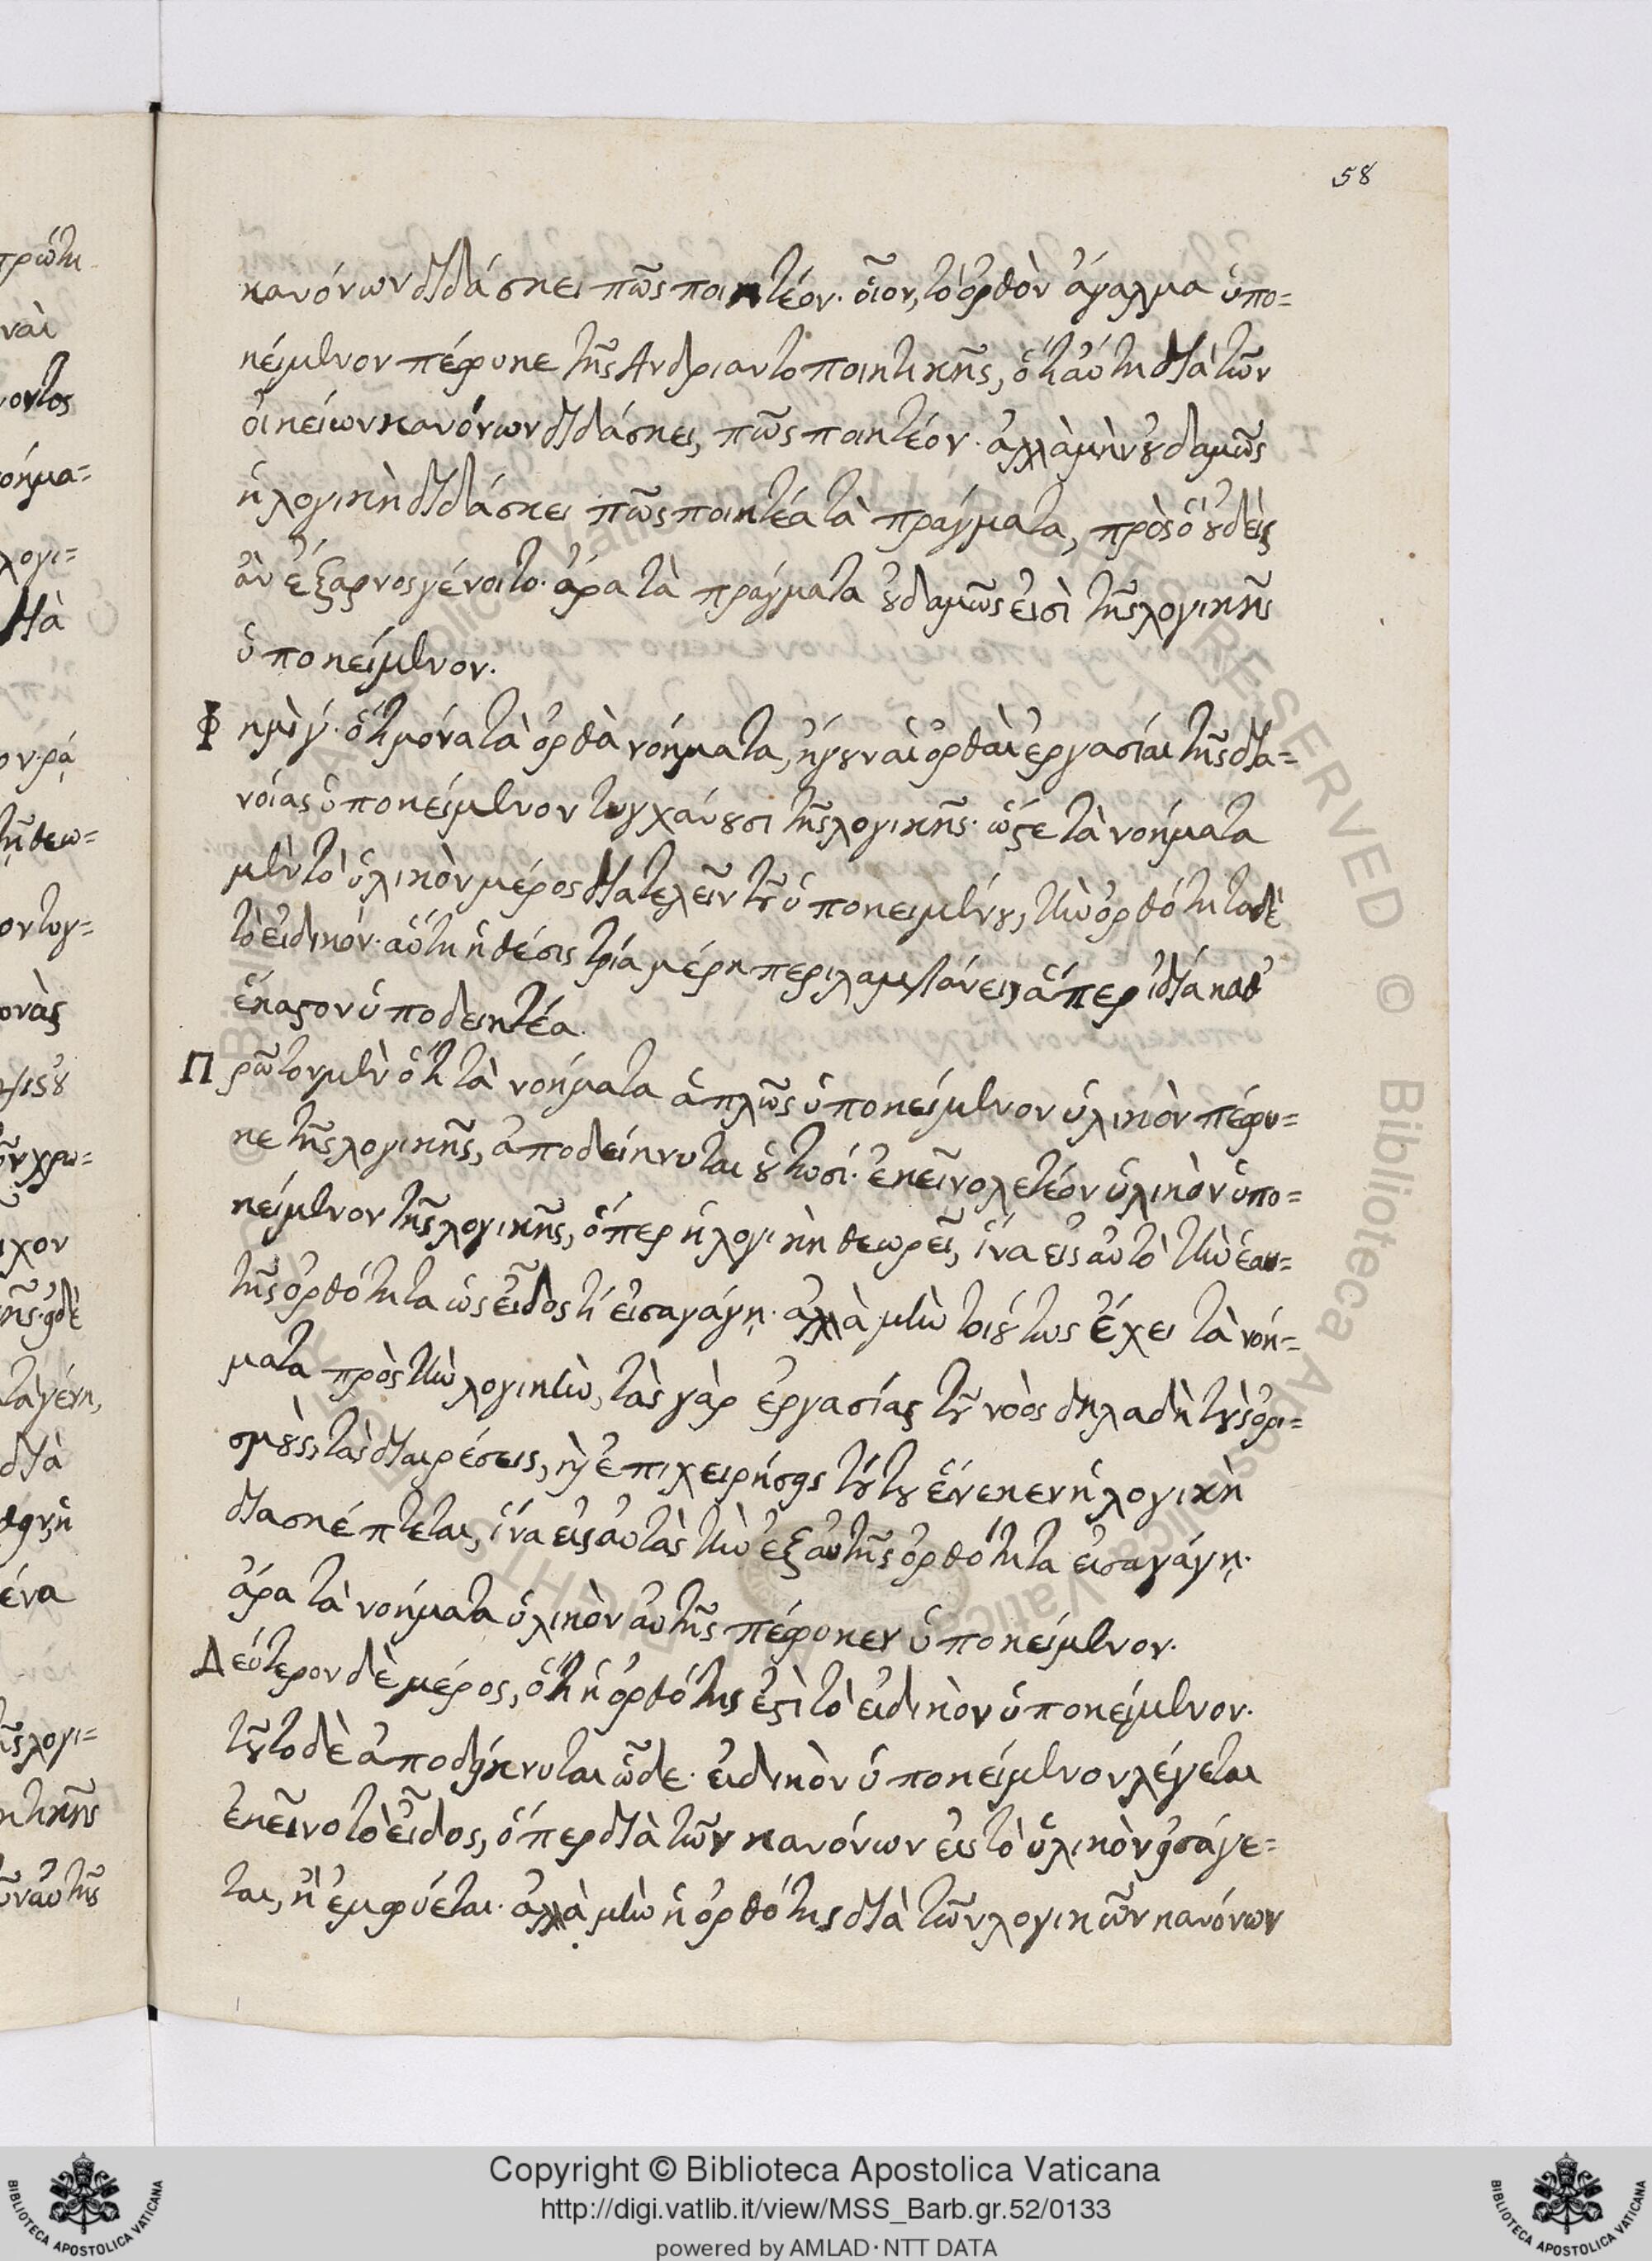 58
κανόνων διδάσκει πῶς ποιητέον· οἷον, τὸ ὀρθὸν ἄγαλμα ὑπο=
κείμενον πέφυκε τῆς Ἀνδριαντοποιητικῆς, ὅτι αὕτη διὰ τῶν
οἰκείων κανόνων διδάσκει, πῶς ποιητέον· ἀλλὰ μὴν οὐδαμῶς
ἡ λογικὴ διδάσκει πῶς ποιητέα τὰ πράγματα, πρὸς ὃ οὐδεὶς
ἂν ἔξαρνος γένοιτο· ἄρα τὰ πράγματα οὐδαμῶς εἰσὶ τῆς λογικῆς
ὑποκείμενον.
Φημὶ γ΄· ὅτι μόνα τὰ ὀρθὰ νοήματα, ἤγουν αἱ ὀρθαὶ ἐργασίαι τῆς δια=
νοίας ὑποκείμενον τυγχάνουσι τῆς λογικῆς· ὥστε τὰ νοήματα
μὲν τὸ ὑλικὸν μέρος διατελεῖν τοῦ ὑποκειμένου, τὴν ὀρθότητα δὲ
τὸ εἰδικόν· αὕτη ἡ θέσις τρία μέρη περιλαμβάνει, ἅπερ ἰδίᾳ καθ'
ἕκαστον ὑποδεικτέα.
Πρῶτον μὲν ὅτι τὰ νοήματα ἁπλῶς ὑποκείμενον ὑλικὸν πέφυ=
κε τῆς λογικῆς, ἀποδείκνυται οὑτωσί· ἐκεῖνο λεκτέον ὑλικὸν ὑπο=
κείμενον τῆς λογικῆς, ὅπερ ἡ λογικὴ θεωρεῖ, ἵνα εἰς αὐτὸ τὴν ἑαυ=
τῆς ὀρθότητα ὡς εἶδός τι εἰσαγάγῃ· ἀλλὰ μὴν τοιούτως ἔχει τὰ νοή=
ματα πρὸς τὴν λογικὴν, τὰς γὰρ ἐργασίας τοῦ νοὸς δηλαδὴ τοὺς ὁρι=
σμοὺς, τὰς διαιρέσεις, καὶ ἐπιχειρήσεις τούτου ἕνεκεν ἡ λογικὴ
διασκέπτεται, ἵνα εἰς αὐτὰς τὴν ἐξ αὐτῆς ὀρθότητα εἰσαγάγῃ·
ἄρα τὰ νοήματα ὑλικὸν αὐτῆς πέφυκεν ὑποκείμενον.
Δεύτερον δὲ μέρος, ὅτι ἡ ὀρθότης ἐστὶ τὸ εἰδικὸν ὑποκείμενον.
τοῦτο δὲ ἀποδείκνυται ὧδε· εἰδικὸν ὑποκείμενον λέγεται
ἐκεῖνο τὸ εἶδος, ὅπερ διὰ τῶν κανόνων εἰς τὸ ὑλικὸν εἰσάγε=
ται, ἢ ἐμφύεται· ἀλλὰ μὴν ἡ ὀρθότης διὰ τῶν λογικῶν κανόνων
Copyright © Biblioteca Apostolica Vaticana
http://digi.vatlib.it/view/MSS_Barb.gr.52/0133
powered by AMLAD·NTT DATA